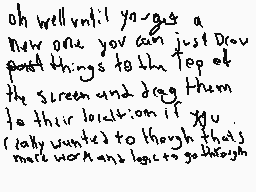 oh well until you get a
new one you can just Draw
things to the top of
the screen and drag them
to their location if you
really wanted to though that's
more work and logic to go through